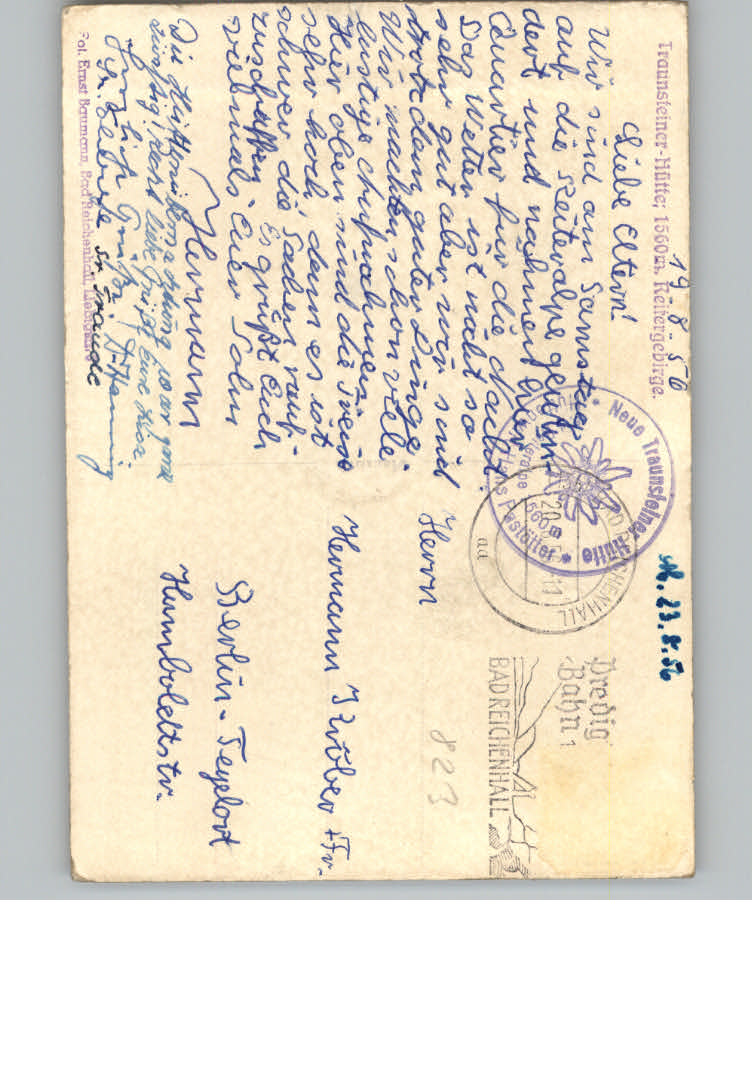 Traunsteiner-Hütte; 1560 m, Reitergebirge.
19.8.56
Liebe Eltern!
Wir sind am Samstag
auf die Reiteralpe gewan-
dert und nahmen hier
Quartier für die Nacht.
Das Wetter ist nicht so
sehr gut aber wir sind
trotzdem guter Dinge.
Wir machten schon viele
lustige Aufnahmen.
Hier oben sind die Preise
sehr hoch, denn es ist
schwer die Sachen rauf-
zuschaffen. Es grüßt Euch
vielmals Euer Sohn
Hermann
Die
Herzliche Grüße
Fot. Ernst Baumann, Bad Reichenhall,
Neue Traunsteiner Hütte
560m
Hans Pastötter
20.
11
aa
A. 23.8.56
Predig
Bahn
BAD REICHENHALL
Herrn
Hermann Kröber + Fr.
Berlin-Tegelort
Humboldtstr.
823